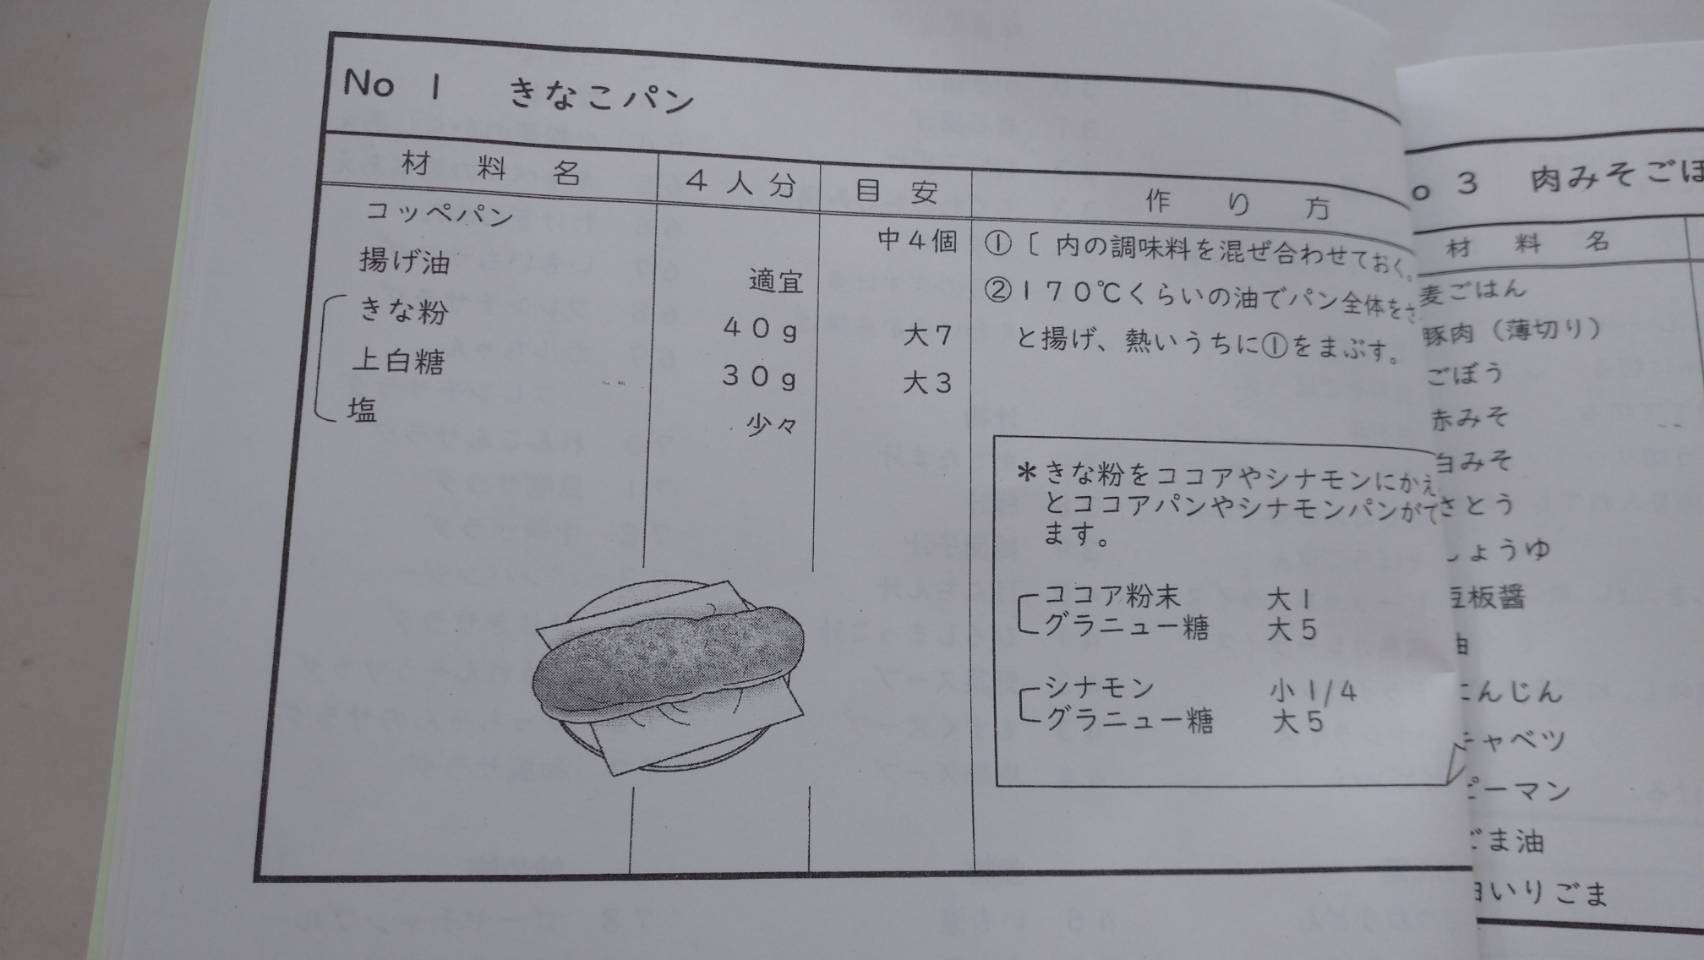 No 1 きなこパン
材料名 4人分 目安 作り方
コッペパン 中4個
揚げ油 適宜
きな粉 40g 大7
上白糖 30g 大3
塩 少々
①〔 内の調味料を混ぜ合わせておく。
②170℃くらいの油でパン全体をさ
と揚げ、熱いうちに①をまぶす。
＊きな粉をココアやシナモンにかえ
とココアパンやシナモンパンがで
ます。
ココア粉末 大1
グラニュー糖 大5
シナモン 小1/4
グラニュー糖 大5
o 3 肉みそごぼ
材料名
麦ごはん
豚肉（薄切り）
ごぼう
赤みそ
白みそ
さとう
しょうゆ
豆板醤
油
にんじん
キャベツ
ピーマン
ごま油
白いりごま